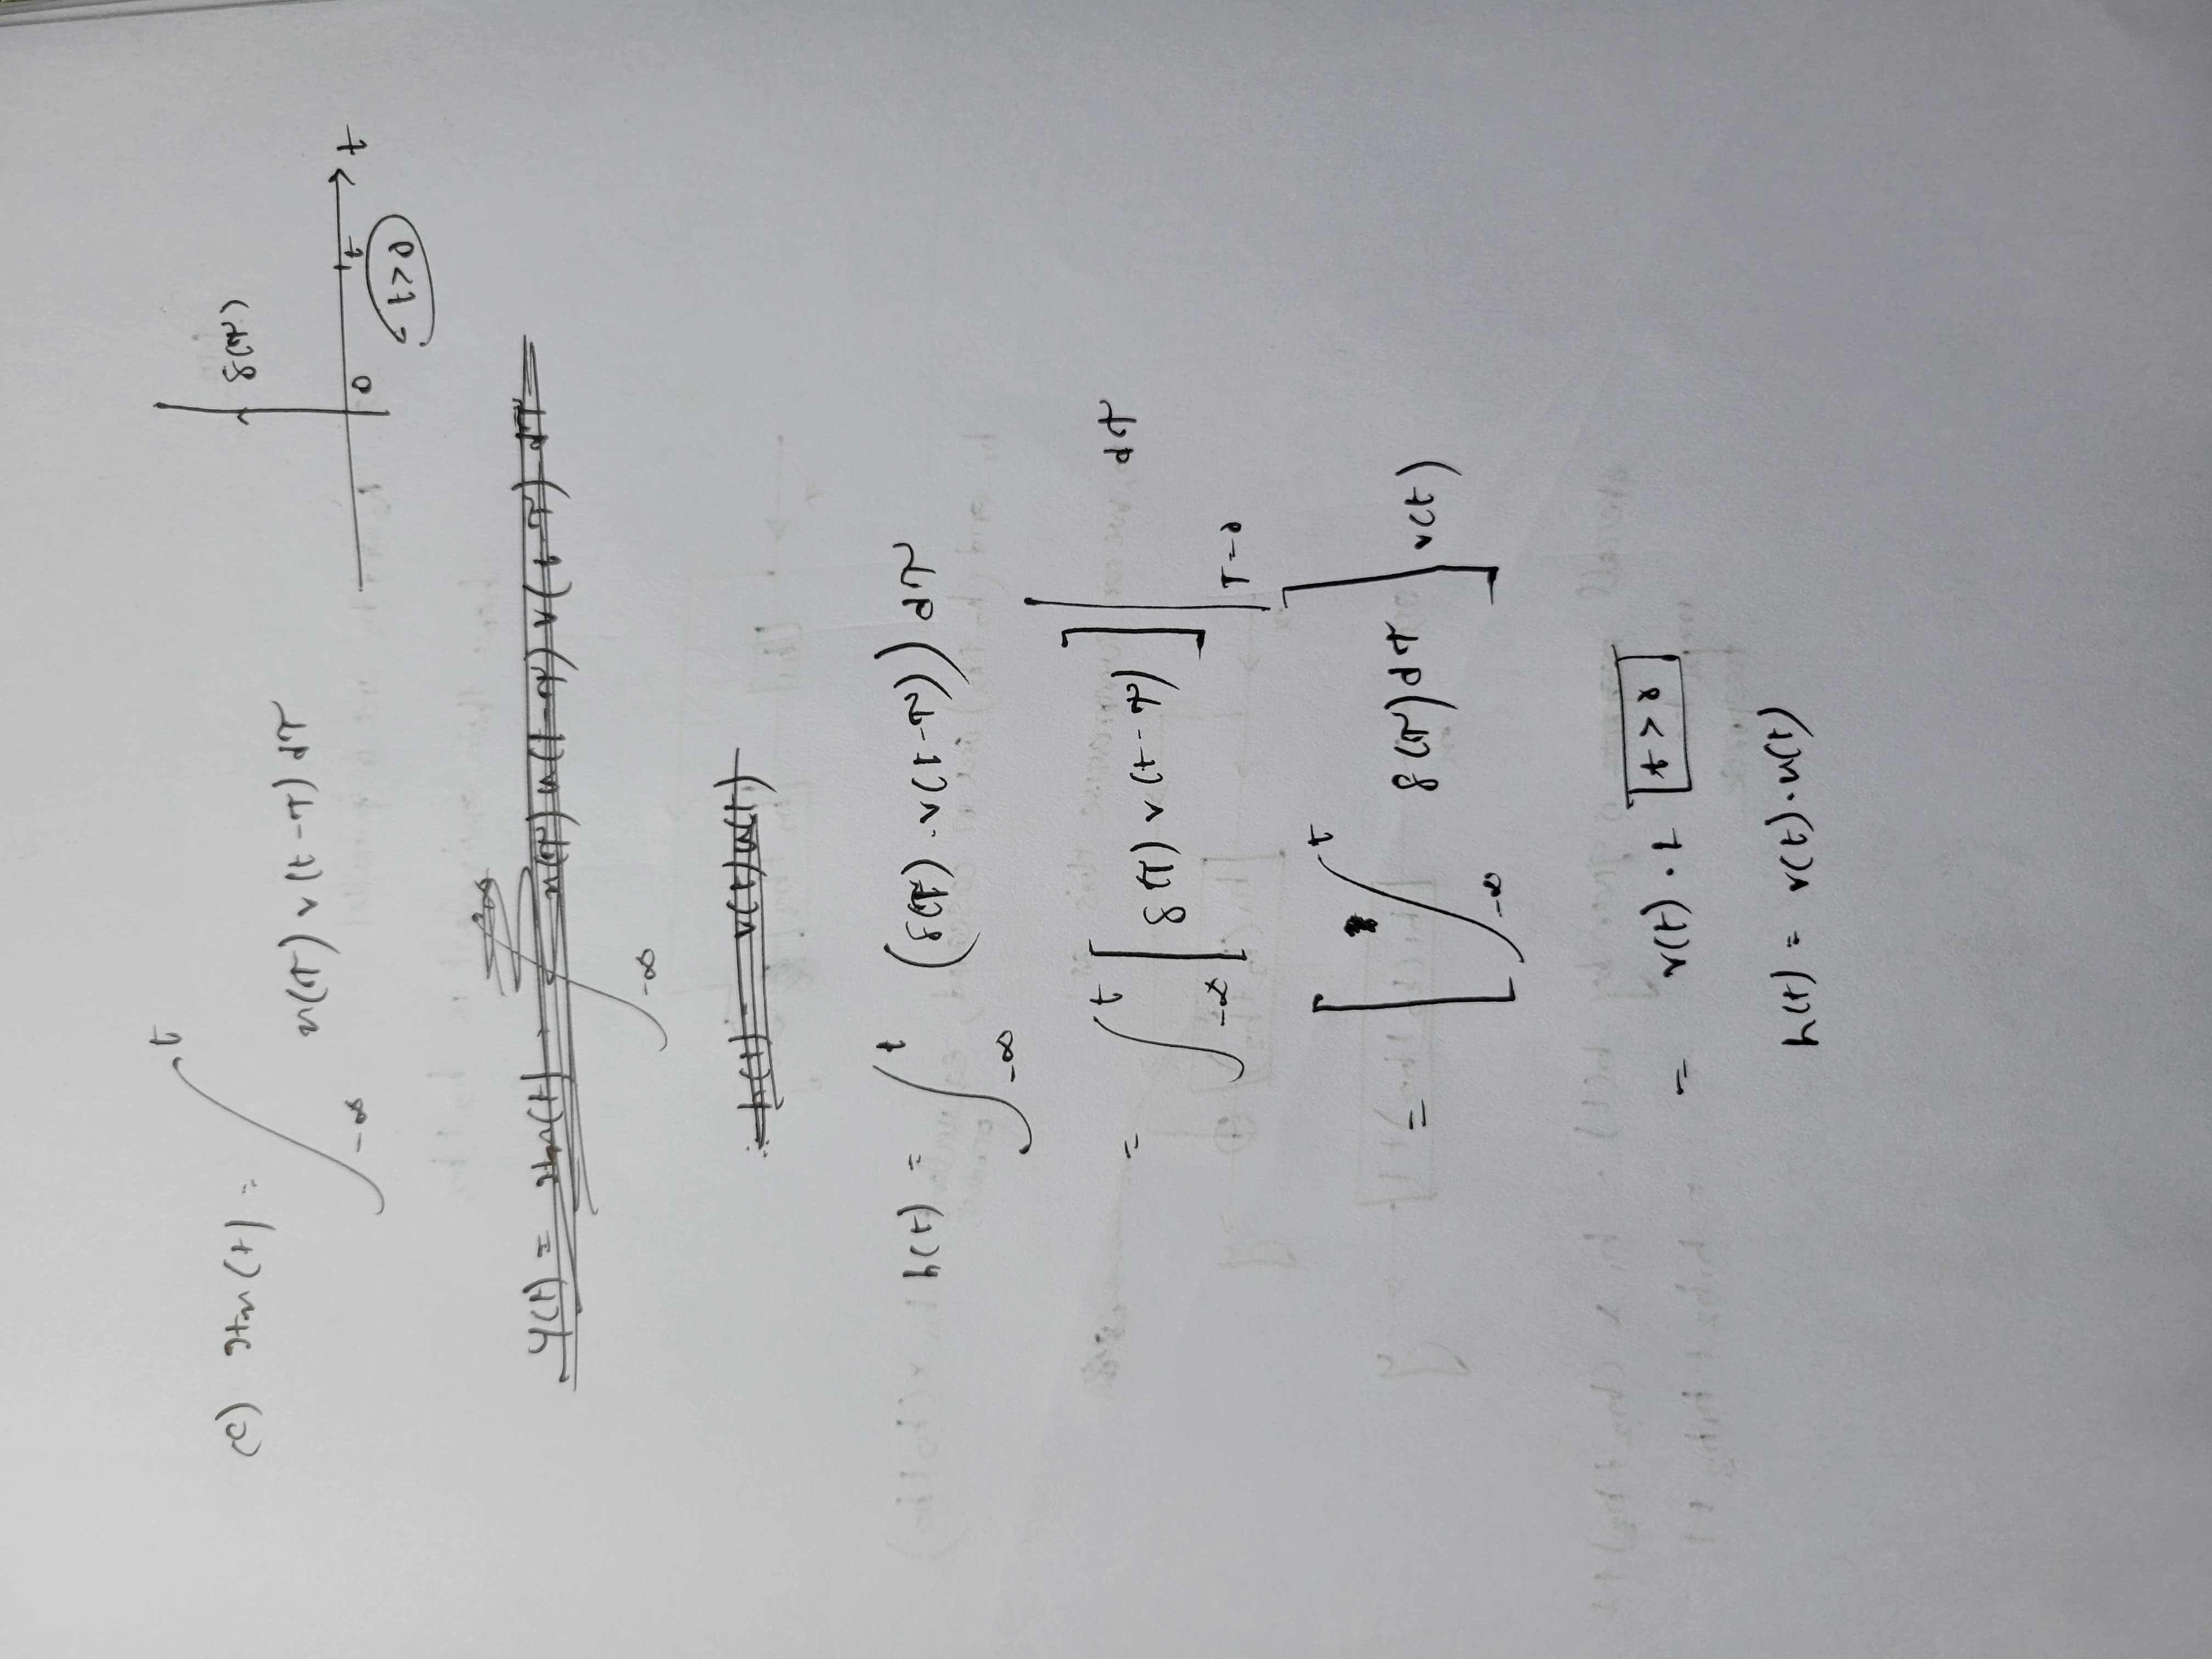 (c) Hx(t) = ∫_{-∞}^{t} x(τ) v(t-τ) dτ
δ(τ)
0 t t
t>0
y(t) = Hx(t) = ∫_{-∞}^{∞} x(τ) u(t-τ) v(t-τ) dτ
∴ h(t) = v(t)u(t)
h(t) = ∫_{-∞}^{t} (δ(τ) . v(t-τ)) dτ
= ∫_{-∞}^{t} [δ(τ) v(t-τ)] |_{τ=0} dτ
= [∫_{-∞}^{t} δ(τ) dτ] v(t)
= v(t) . 1 t>0
h(t) = v(t) . u(t)